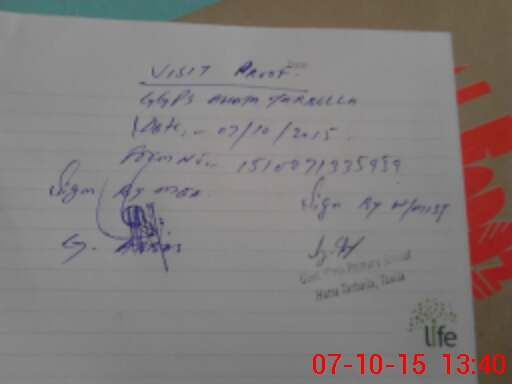 VISIT PROOF.
GGPS AHATA TARBELLA
Date, - 07/10/2015.
Form No.. 1510071335959
Sign By MEA
Sign By H/MIST
G. ABBAS
Govt. Primary School
Tarbella, Taxila
life
07-10-15 13:40